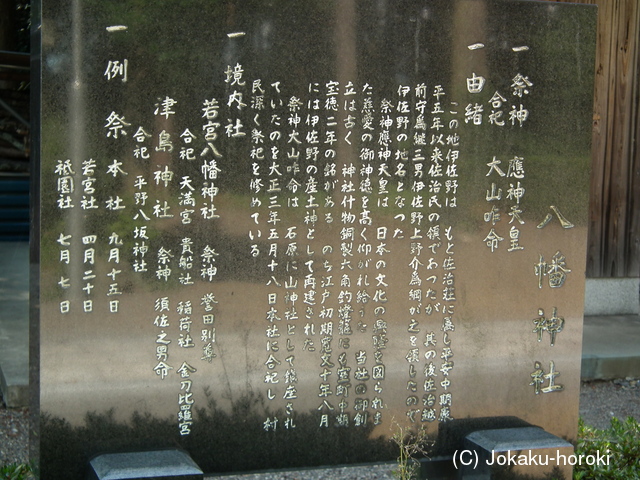 八幡神社
一 祭神 應神天皇
合祀 大山咋命
一 由緒
この地伊佐野は もと佐治荘に属し平安中期康
平五年以来佐治氏の領であつたが 其の後佐治越
前守為継三男伊佐野上野介為綱が之を領したので
伊佐野の地名となつた
祭神應神天皇は 日本の文化の興隆を図られま
た慈愛の御神徳を高く仰がれ給うた 当社の御創
立は古く 神社什物銅製六角釣燈籠にも室町中期
宝徳二年の銘がある のち江戸初期寛文十年八月
には伊佐野の産土神として再建された
祭神大山咋命は 石原に山神社として鎮座され
ていたのを大正三年五月十八日本社に合祀し 村
民深く祭祀を修めている
一 境内社
若宮八幡神社 祭神 誉田別尊
合祀 天満宮 貴船社 稲荷社 金刀比羅宮
津島神社 祭神 須佐之男命
合祀 平野八坂神社
一 例祭 本社 九月十五日
若宮社 四月二十日
祇園社 七月七日
(C) Jokaku-horoki